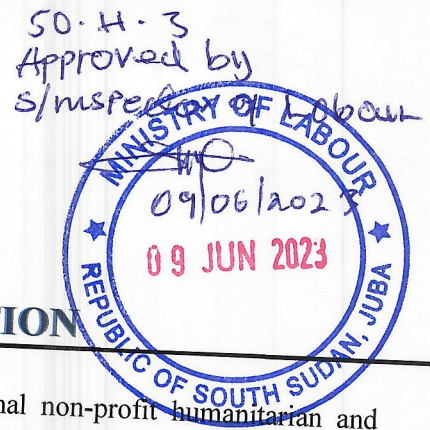 50.H.3
Approved by
S/Inspector of Labour
MINISTRY OF LABOUR
09/06/2023
09 JUN 2023
REPUBLIC OF SOUTH SUDAN, JUBA
TION
nal non-profit humanitarian and